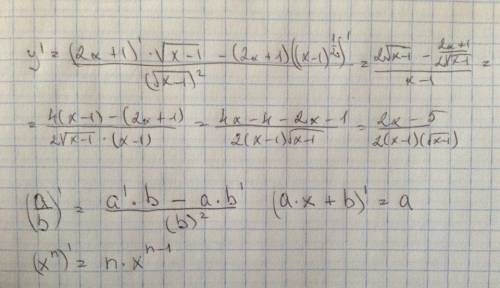 y' = ((2x+1)' · √(x-1) - (2x+1)((x-1)^(1/2))') / (√(x-1))² = (2√(x-1) - (2x+1)/(2√(x-1))) / (x-1) =
= (4(x-1) - (2x+1)) / (2√(x-1) · (x-1)) = (4x-4-2x-1) / (2(x-1)√(x-1)) = (2x-5) / (2(x-1)(√(x-1)))
(a/b)' = (a' · b - a · b') / (b)² (a·x+b)' = a
(xⁿ)' = n · xⁿ⁻¹